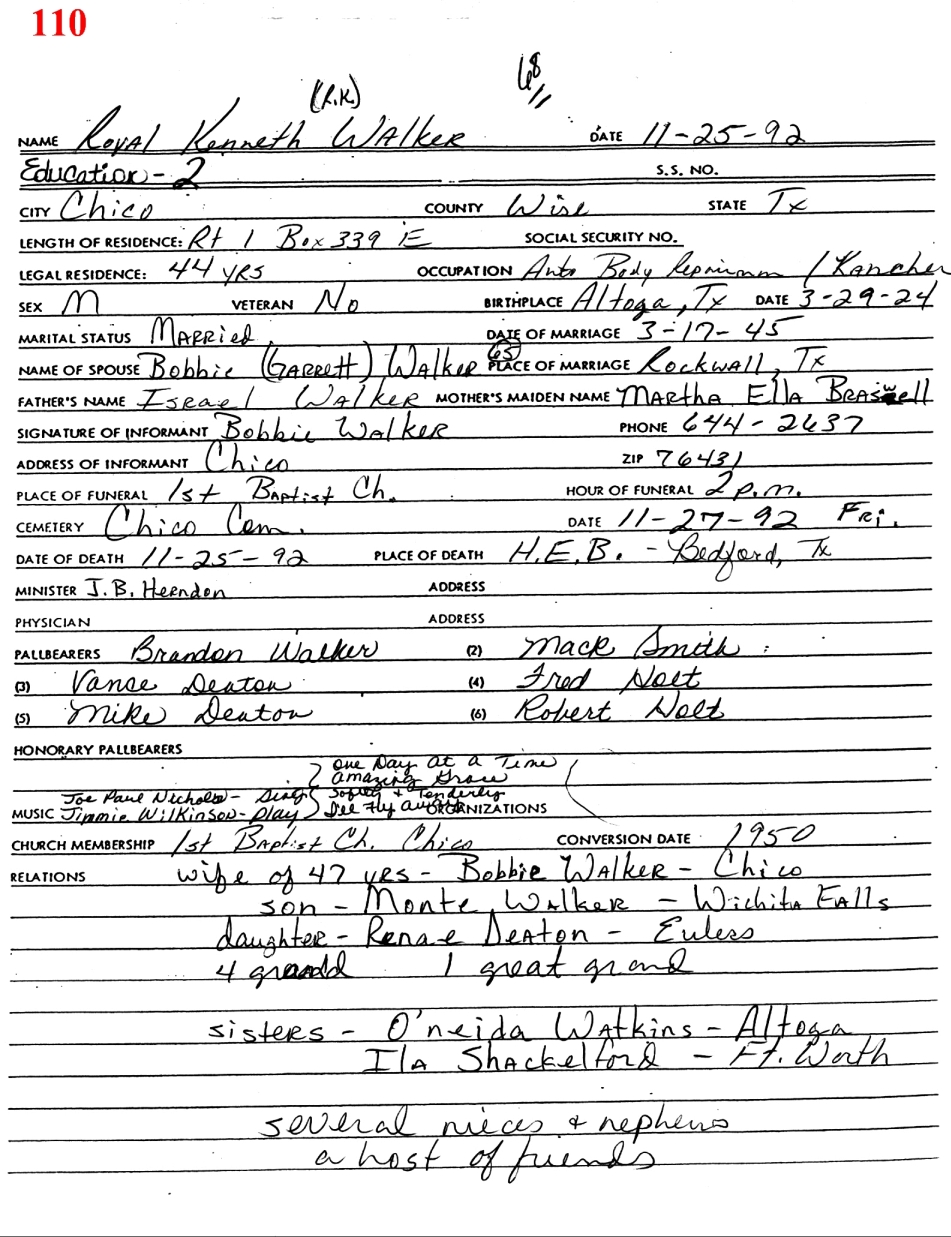 110
(R.K) 68
NAME Royal Kenneth Walker DATE 11-25-92
Education - 2 S.S. NO.
CITY Chico COUNTY Wise STATE Tx
LENGTH OF RESIDENCE: Rt 1 Box 339 E SOCIAL SECURITY NO.
LEGAL RESIDENCE: 44 yrs OCCUPATION Auto Body / Rancher
SEX M VETERAN No BIRTHPLACE Altoga, Tx DATE 3-29-24
MARITAL STATUS Married DATE OF MARRIAGE 3-17-45
NAME OF SPOUSE Bobbie (Garrett) Walker 65 PLACE OF MARRIAGE Rockwall, Tx
FATHER'S NAME Israel Walker MOTHER'S MAIDEN NAME Martha Ella Braswell
SIGNATURE OF INFORMANT Bobbie Walker PHONE 644-2637
ADDRESS OF INFORMANT Chico ZIP 76431
PLACE OF FUNERAL 1st Baptist Ch. HOUR OF FUNERAL 2 p.m.
CEMETERY Chico Cem. DATE 11-27-92 Fri.
DATE OF DEATH 11-25-92 PLACE OF DEATH H.E.B. - Bedford, Tx
MINISTER J.B. Herndon ADDRESS
PHYSICIAN ADDRESS
PALLBEARERS Brandon Walker (2) Mack Smith
(3) Vance Deaton (4) Fred Holt
(5) Mike Deaton (6) Robert Holt
HONORARY PALLBEARERS
One Day At a Time
Amazing Grace
Joe Paul Nichols - Sing Softly & Tenderly
MUSIC Jimmie Wilkinson - play I'll Fly Away ORGANIZATIONS
CHURCH MEMBERSHIP 1st Baptist Ch. Chico CONVERSION DATE 1950
RELATIONS wife of 47 yrs - Bobbie Walker - Chico
son - Monte Walker - Wichita Falls
daughter - Renae Deaton - Euless
4 grand 1 great grand
sisters - O'neida Watkins - Altoga
Ila Shackelford - Ft. Worth
several nieces & nephews
a host of friends